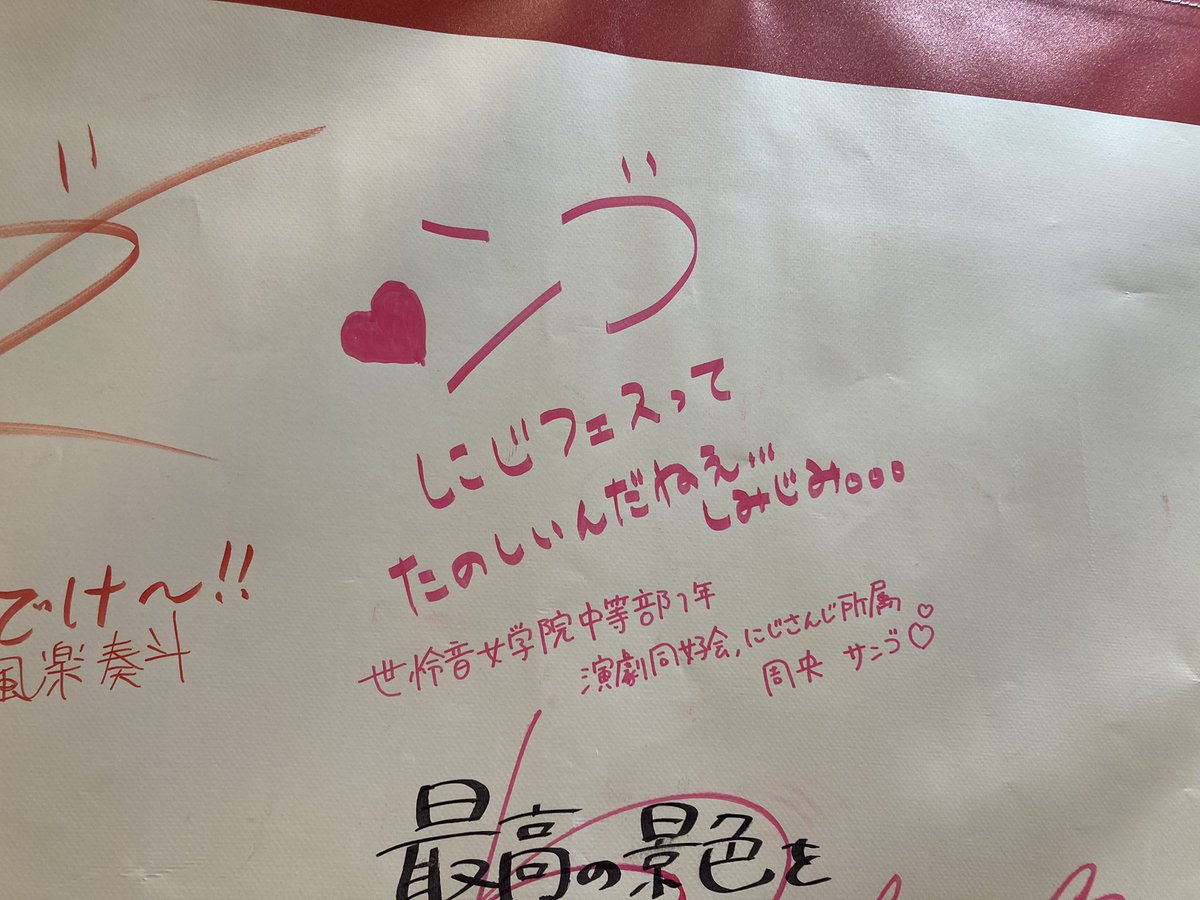 ♥ンゴ
にじフェスって
たのしいんだねえ…
しみじみ。。。
世怜音女学院中等部1年
演劇同好会,にじさんじ所属
周央 サンゴ♡♡
でけ〜!!
風楽奏斗
最高の景色を